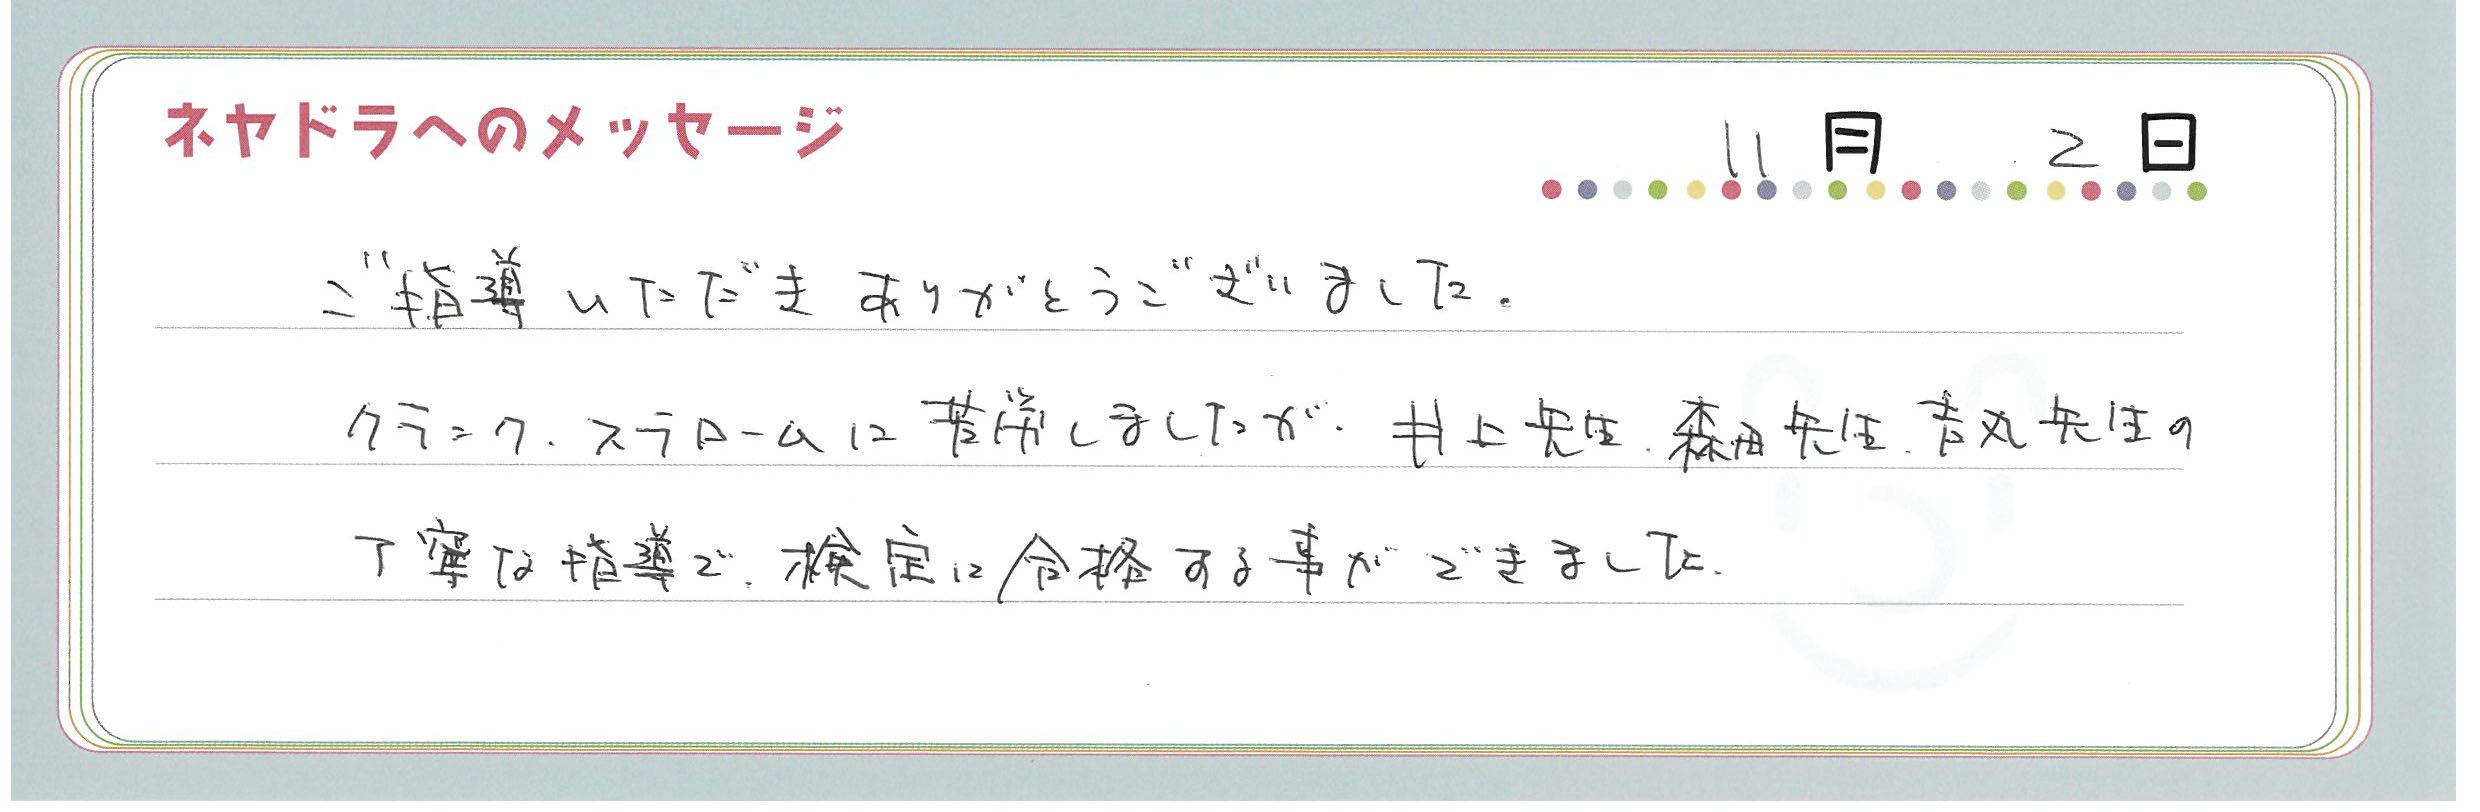 ネヤドラへのメッセージ
11月 2日
ご指導いただきありがとうございました。
クランク、スラロームに苦労しましたが、井上先生、森田先生、吉丸先生の
丁寧な指導で、検定に合格する事ができました。